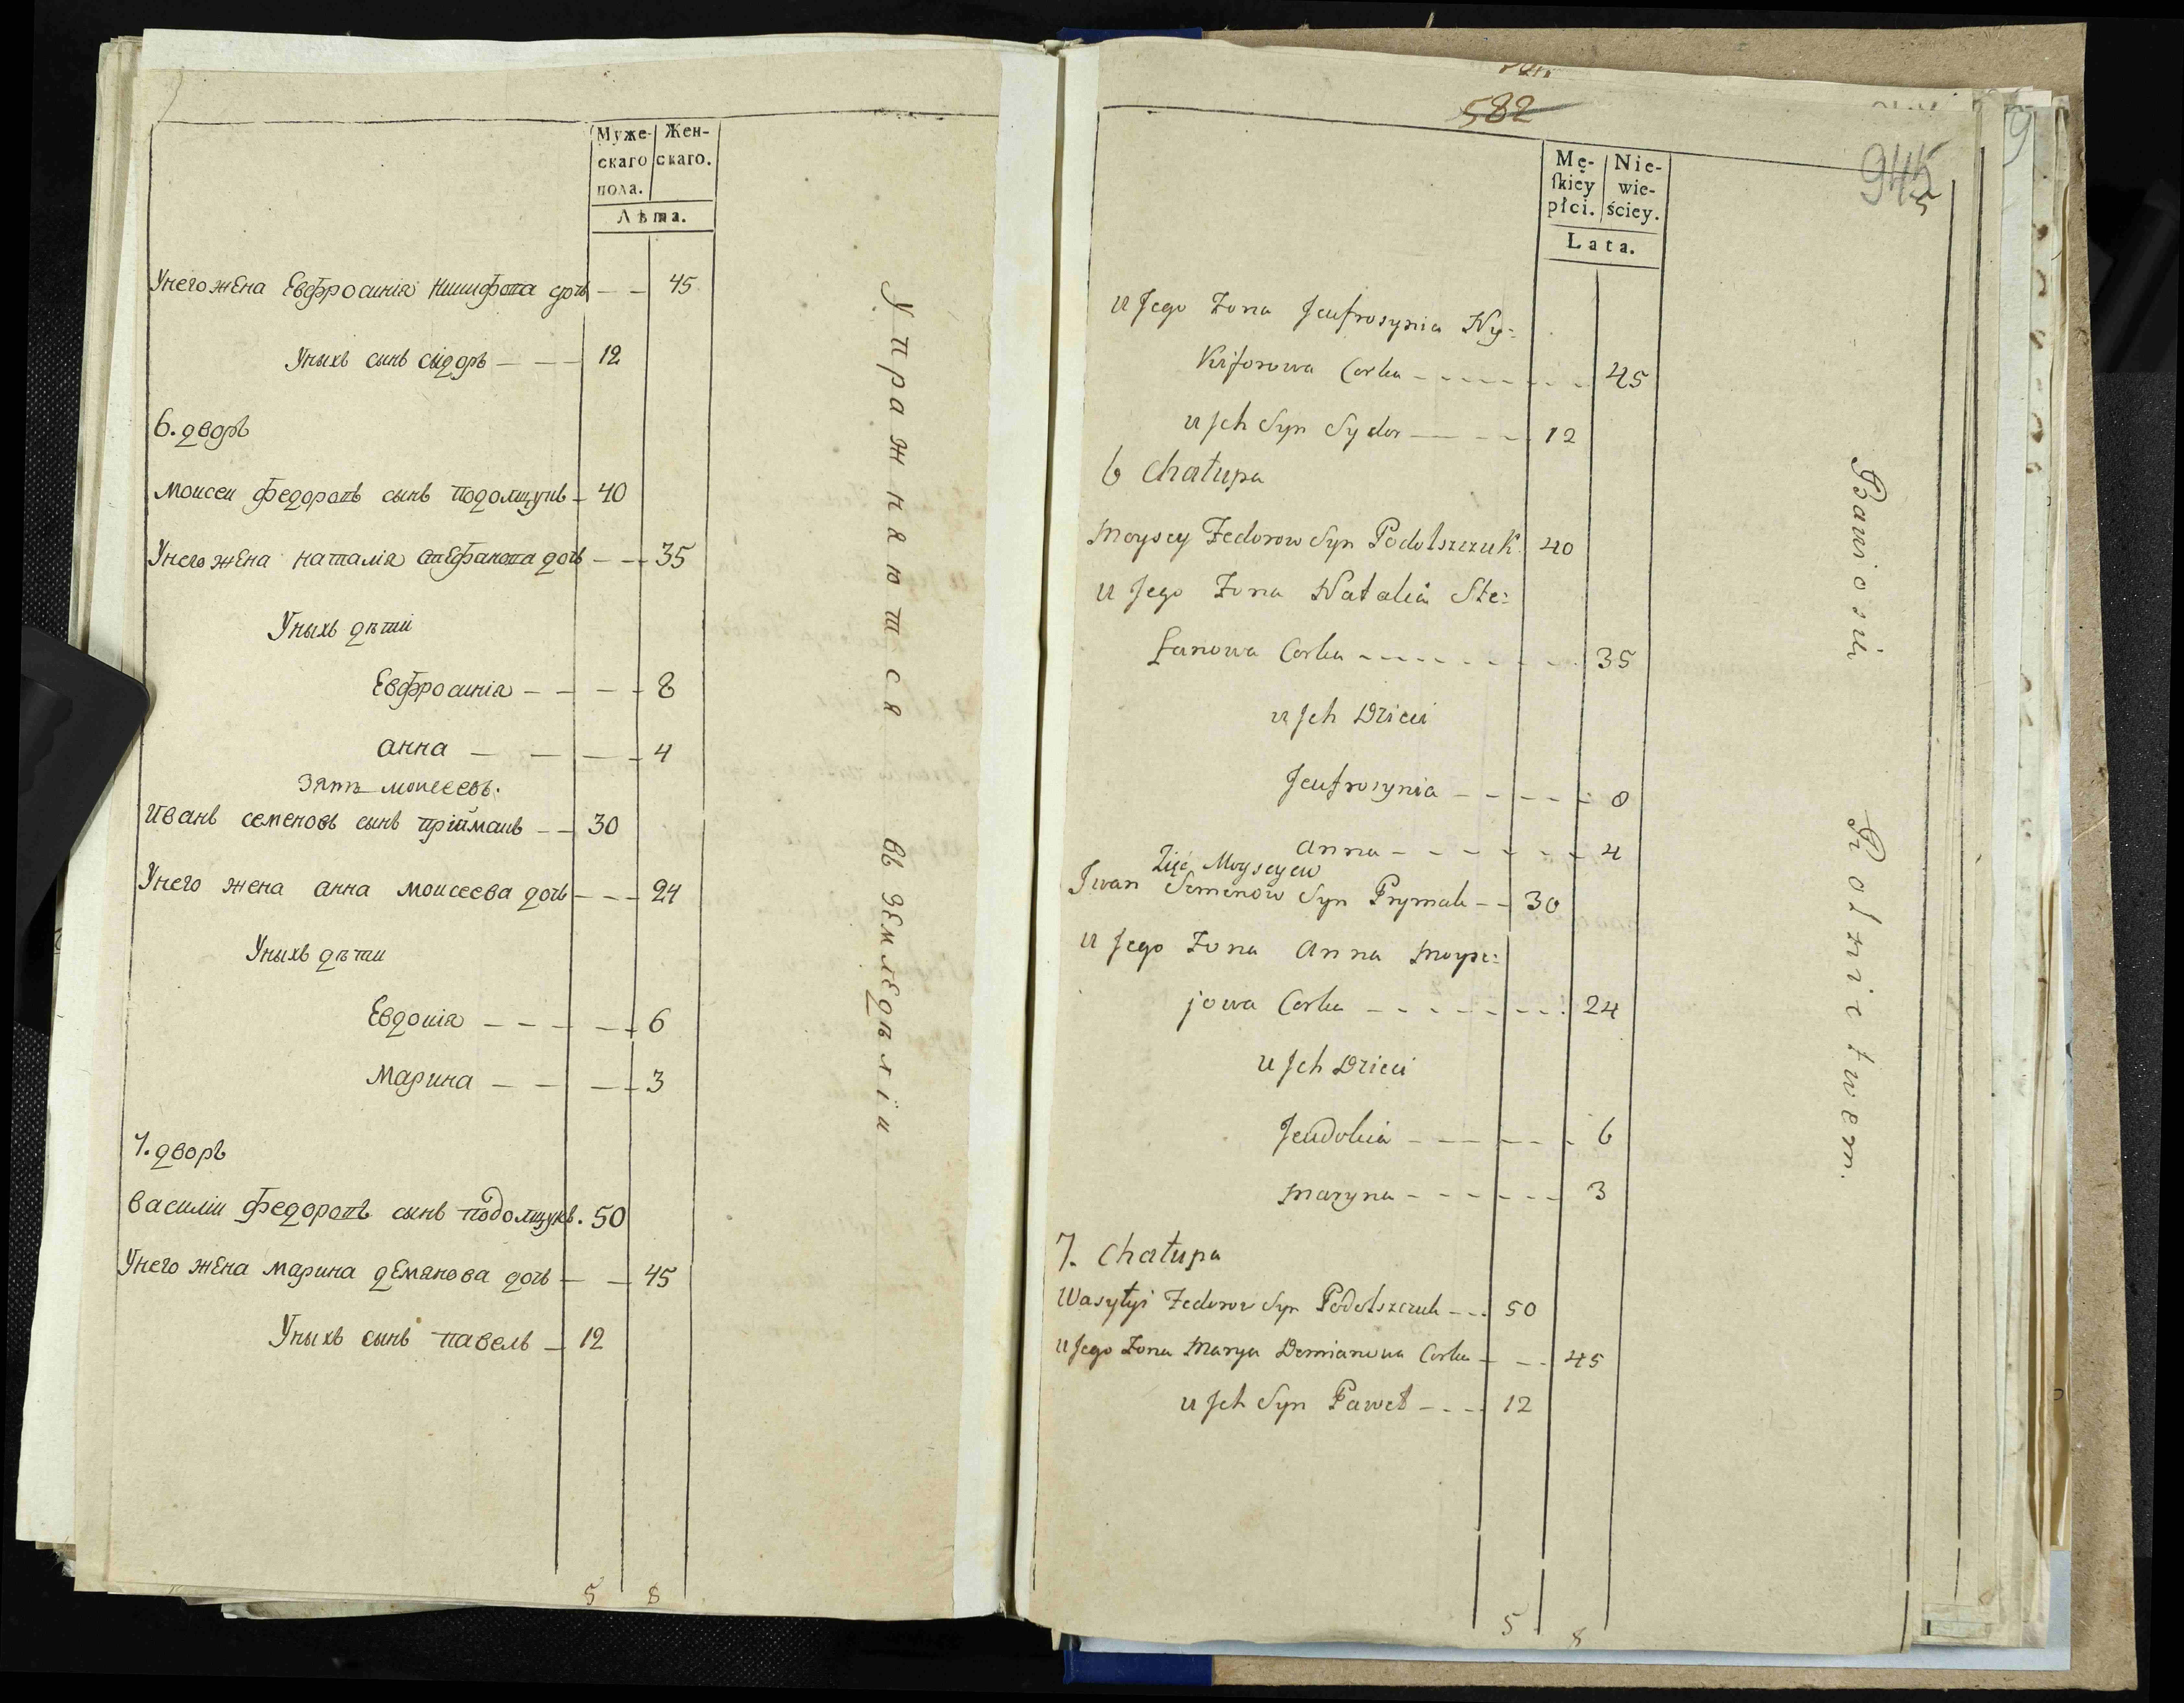 Муже- Жен-
скаго скаго.
пола.
Лѣта.
Унего жена Евфросинія никифова дочь — — 45
Уныхъ сынъ сидоръ — — — 12
6. дворъ
Моисеи федоровъ сынъ подолщукъ — 40
Унего жена наталія стефанова дочь — — — 35
Уныхъ дѣти
Евфросинія — — — — 8
анна — — — — 4
зять моисеевъ.
Иванъ семеновъ сынъ прiймакъ — — 30
Унего жена анна моисеева дочь — — — 24
Уныхъ дѣти
Евдокія — — — — — 6
Марина — — — — 3
7. дворъ
Василіи федоровъ сынъ подолщукъ. 50
Унего жена марина демянова дочь — — 45
Уныхъ сынъ павелъ — 12
5 8
Упражняются въ земледѣліи
582
945
5
Mę- Nie-
skiey wie-
płci. ściey.
Lata.
u Jego Zona Jeufrosynia Ny:
Kiforowa Corka - - - - - - - - 45
u Jch Syn Sydor — — — 12
6 Chałupa
Moysey Fedorow Syn Podolszczuk 40
u Jego Zona Natalia Ste:
fanowa Corka - - - - - - - - - 35
u Jch Dzieci
Jeufrosynia - - - - - 8
Anna - - - - - - 4
Zięć Moyseyew
Iwan Semenow Syn Prymak - - 30
u Jego Zona Anna Moyse:
jowa Corka - - - - - - - - 24
u Jch Dzieci
Jeudokia - - - - - - 6
Maryna - - - - - - 3
7. Chałupa
Wasylyi Fedorow Syn Podolszczuk - - - 50
u Jego Zona Marya Demianowa Corka - - - 45
u Jch Syn Paweł - - - - 12
5 8
Bawio sie Rolnictwem.